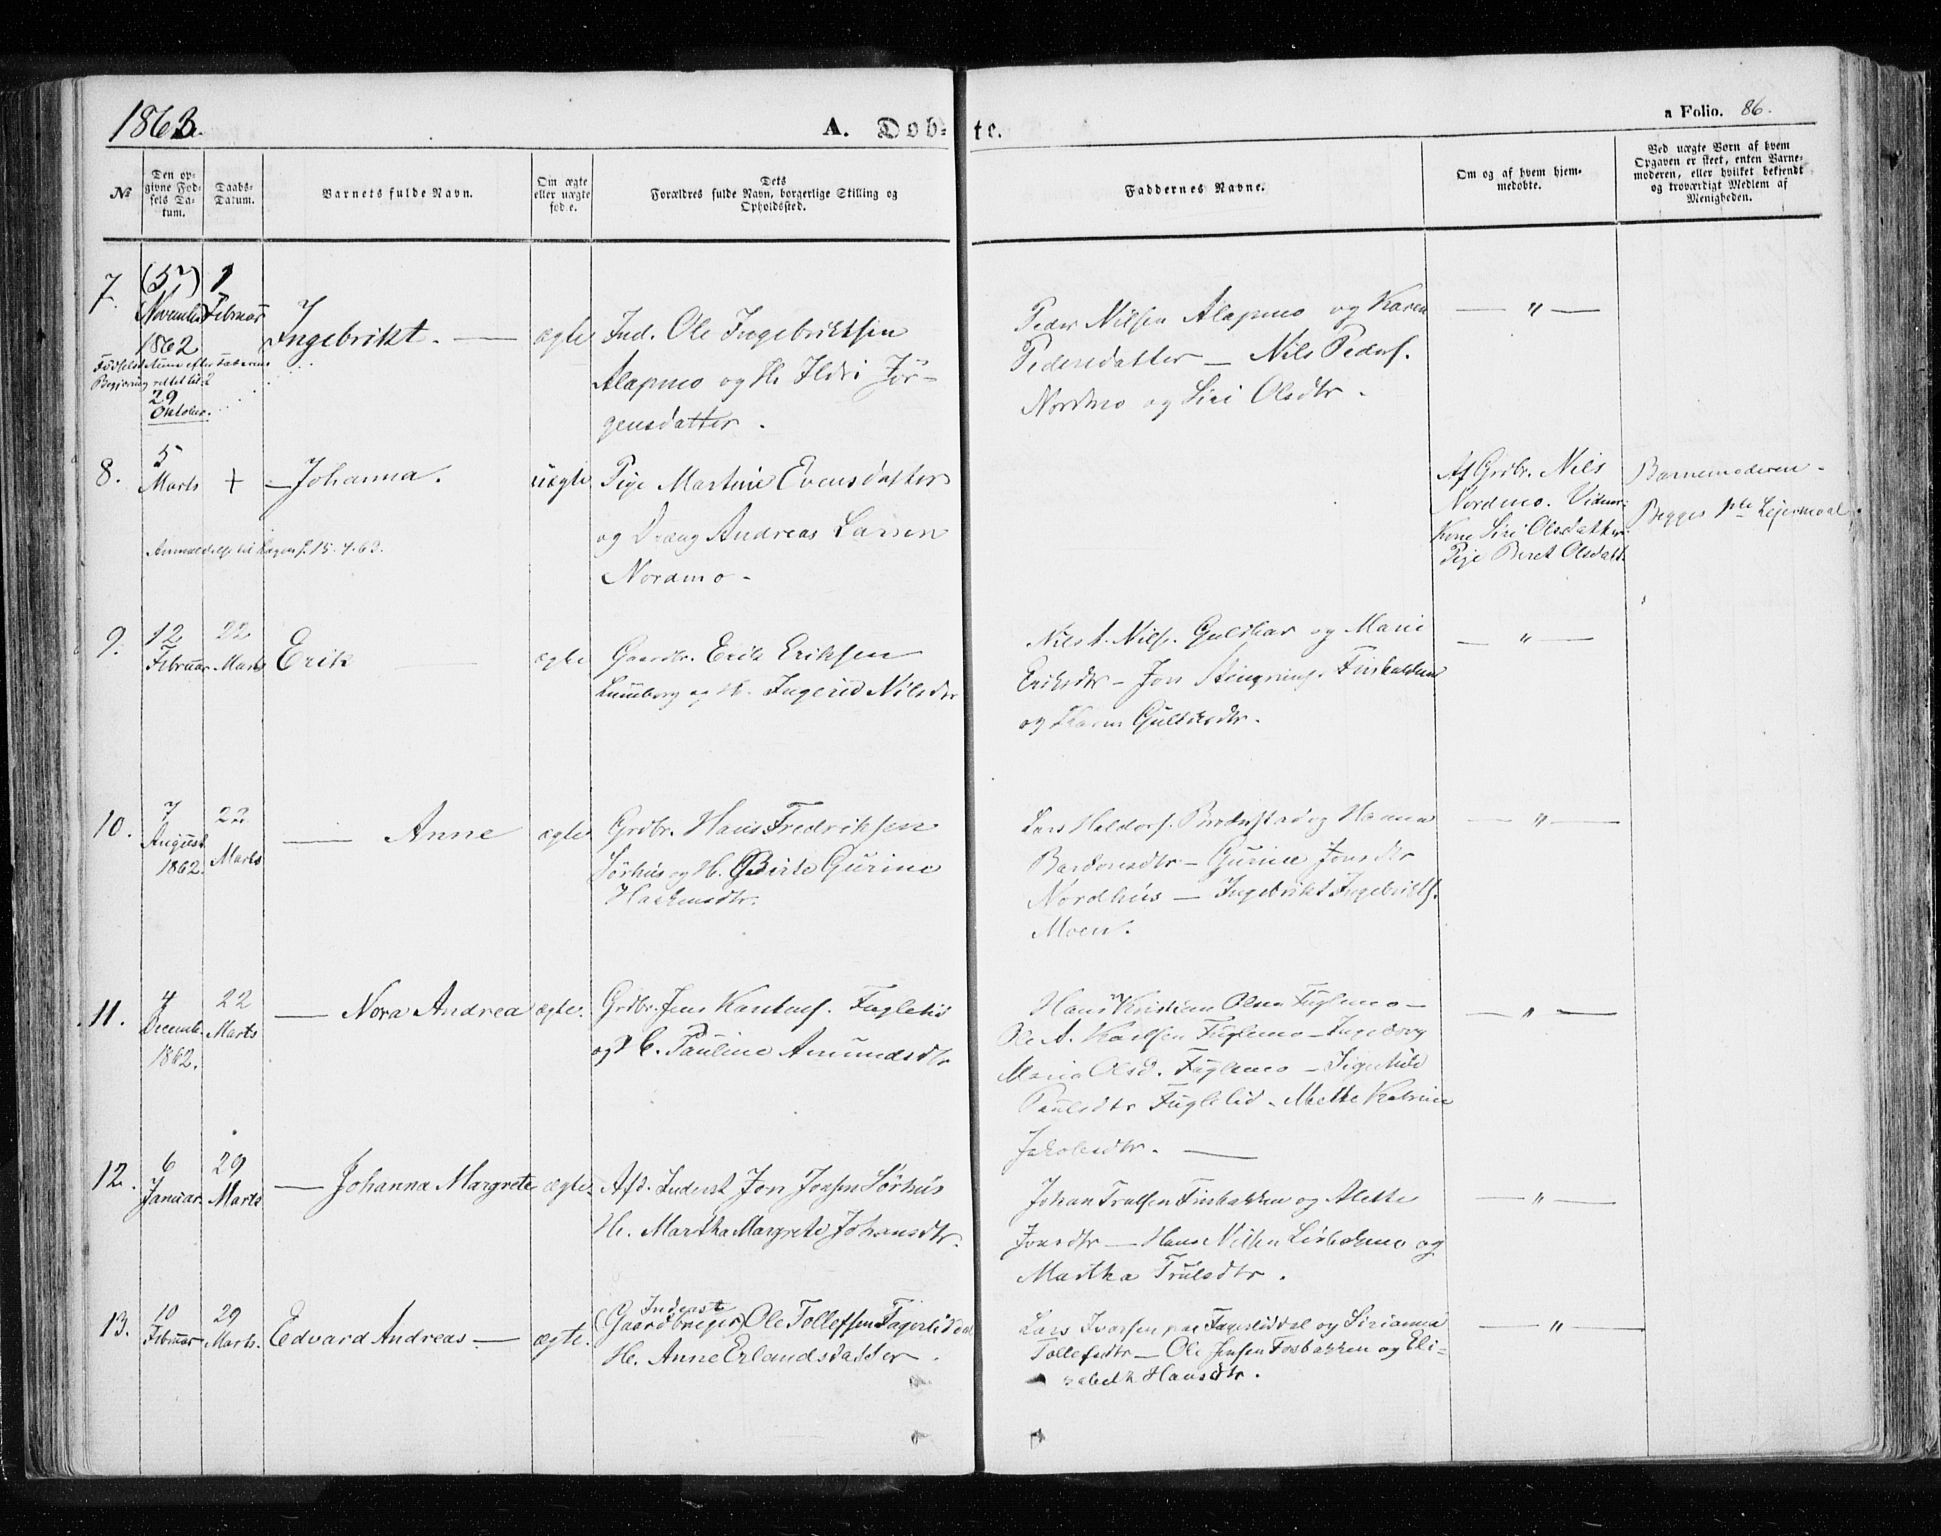 1863.
A. Døb-
te.
a Folio. 86.
No
Den op-
givne Fød-
sels Da-
tum.
Daabs-
Datum.
Barnets fulde Navn.
Om ægte
eller uægte
fød.e.
Dets
Forældres fulde Navn, borgerlige Stilling og
Opholdssted.
Faddernes Navne.
Om og af hvem hjem-
medøbte.
Ved uægte Børn af hvem
Opgaven er skeet, enten Barne-
moderen, eller hvilket bekjendt
og troværdigt Medlem af
Menigheden.
7.
(5)
November
1862
29
Oktober.
1
Februar
Ingebrikt. —
ægte
Ind. Ole Ingebriktsen
Alapmo og H. Ildri Jør-
gensdatter.
Peder Nilsen Alapmo og Karen
Pedersdatter — Nils Peders.
Nordmo og Siri Olsdtr.
— " —
8.
5
Marts
+
— Johanna.
uægte
Pige Martine Evensdatter
og Dreng Andreas Larsen
Nordmo -
Af Grdbr. Nils
Nordmo.
Kone Siri Olsdatter
Pige Beret Olsdatt.
Barnemoderen -
Begges 1ste Lejermaal.
15.4.63.
9.
12
Februar
22
Marts
Erik —
ægte
Gaardbr. Erik Eriksen
og H. Ingerid Nilsdtr
Nils A. Nils. Guldhav og Marie
Eriksdtr — Jon
og Karen
— " —
10.
7
August
1862.
22
Marts
— Anne
ægte
Grdbr. Hans Fredriksen
Sørhus og H. Birte Gurine
Lars Haldors. Bredestad og Hanna
Bardonsdtr — Gurine Jonsdtr
Nordhus — Ingebrikt Ingebrikts.
Moen.
— " —
11.
4
Decemb.
1862.
22
Marts
— Nora Andrea
ægte.
Grdbr. Jens Fuglelid
og H. Pauline Amundsdtr
Hans Kristian Olsen Fuglemo —
Ole A. Karlsen Fuglemo — Ingeborg
Maria Olsd. Fuglemo —
Paulsdtr Fuglelid - Mette Katrine
Jakobsdtr. —
— " —
12.
6
Januar.
29
Marts
— Johanna Margrete
ægte.
Afd. Inderst Jon Jonsen Sørhus
H. Martha Margrete Johansdtr.
Johan Trulsen Finbakken og Alette
Jonsdtr — Hans Nilsen og
Martha Trulsdtr.
— " —
13.
10
Februar
29
Marts.
Edvard Andreas —
ægte.
Inderst
(Gaardbruger) Ole Tollefsen Fagerliddal
H. Anne Erlandsdatter.
Lars Ivarsen paa Fagerliddal og Sirianna
Tollefsdtr — Ole Jensen Fosbakken og Eli-
sabeth Hansdtr.
— " —